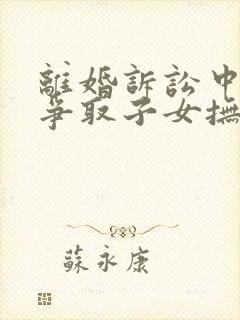 離婚訴訟中
爭取子女撫
蘇永康